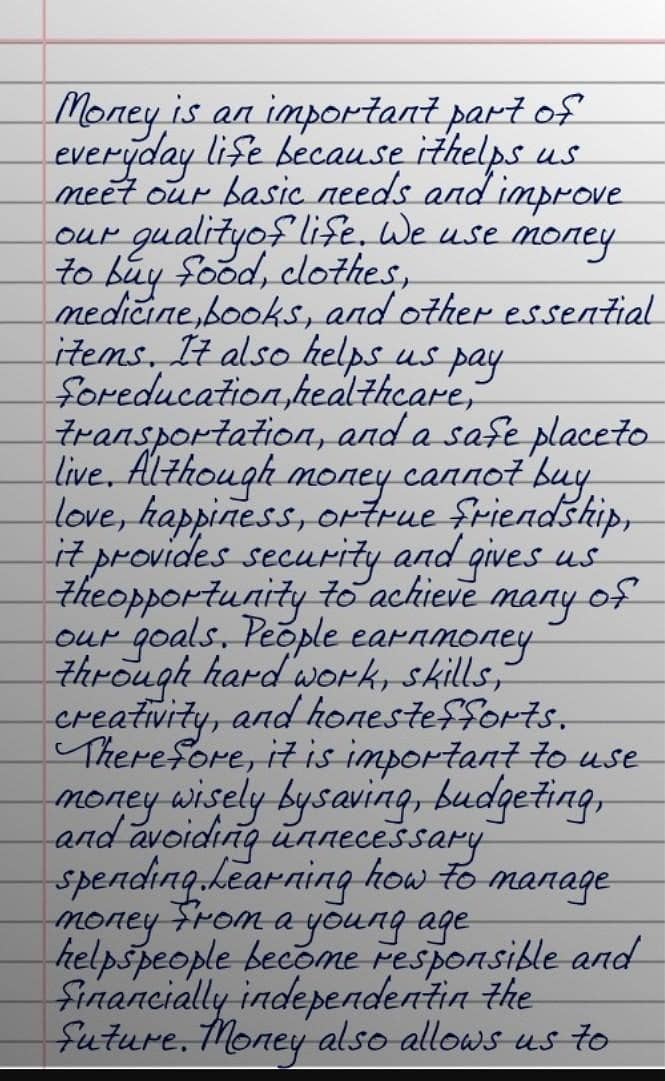 Money is an important part of
everyday life because ithelps us
meet our basic needs and improve
our qualityof life. We use money
to buy food, clothes,
medicine,books, and other essential
items. It also helps us pay
foreducation,healthcare,
transportation, and a safe placeto
live. Although money cannot buy
love, happiness, ortrue friendship,
it provides security and gives us
theopportunity to achieve many of
our goals. People earnmoney
through hard work, skills,
creativity, and honestefforts.
Therefore, it is important to use
money wisely bysaving, budgeting,
and avoiding unnecessary
spending.Learning how to manage
money from a young age
helpspeople become responsible and
financially independentin the
future. Money also allows us to